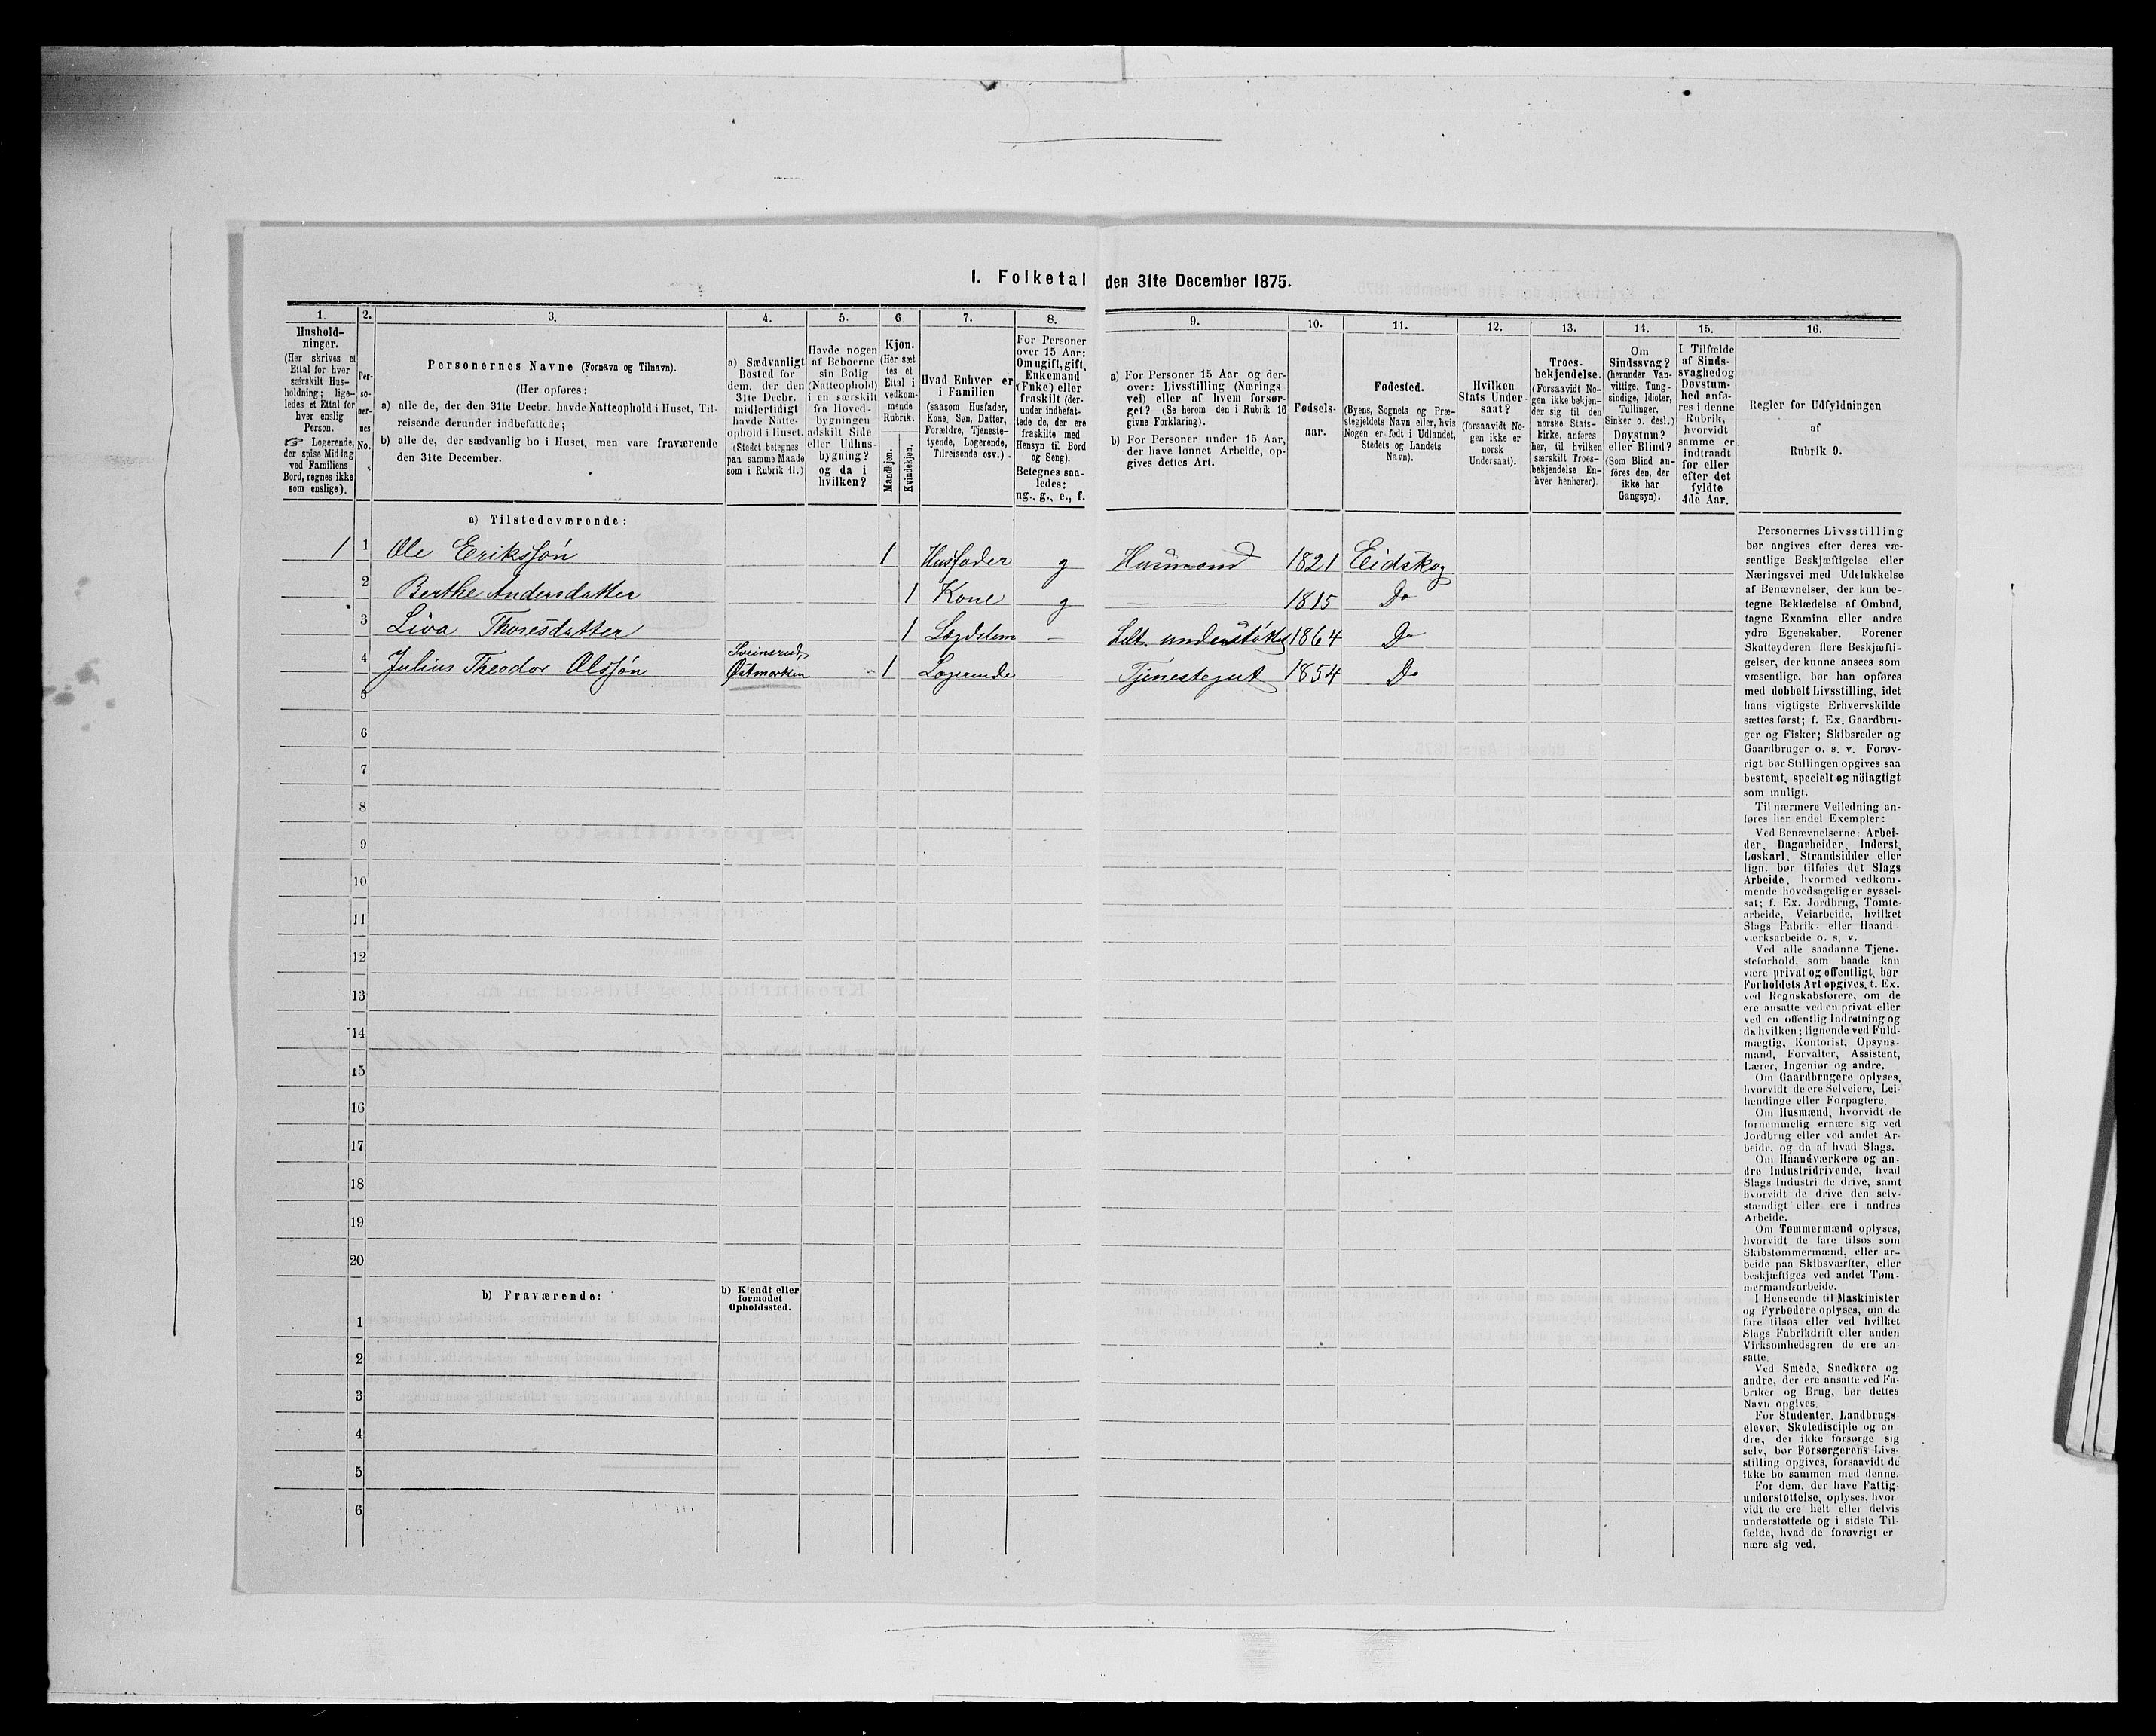 I. Folketal den 31te December 1875.
1. 2. 3. 4. 5. 6. 7. 8. 9. 10. 11. 12. 13. 14. 15. 16.
Hushold-
ninger.
(Her skrives et
Ettal for hver
særskilt Hus-
holdning; lige-
ledes et Ettal for
hver enslig
Person.
☞ Logerende,
der spise Middag
ved Familiens
Bord, regnes ikke
som enslige).
Per-
so-
ner-
nes
No.
Personernes Navne (Fornavn og Tilnavn).
(Her opføres:
a) alle de, der den 31te Decbr. havde Natteophold i Huset, Til-
reisende derunder indbefattede;
b) alle de, der sædvanlig bo i Huset, men vare fraværende
den 31te December.
a) Sædvanligt
Bosted for
dem, der den
31te Decbr.
midlertidigt
havde Natte-
ophold i Huset.
(Stedet betegnes
paa samme Maade
som i Rubrik 11.)
Havde nogen
af Beboerne
sin Bolig
(Natteophold)
i en særskilt
fra Hoved-
bygningen
adskilt Side
eller Udhus-
bygning?
og da i
hvilken?
Kjøn.
(Her sæt
tes et
Ettal i
vedkom-
mende
Rubrik.
Mandkjøn.
Kvindekjøn.
Hvad Enhver er
i Familien
(saasom Husfader,
Kone, Søn, Datter,
Forældre, Tjeneste-
tyende, Logerende,
Tilreisende osv.)
For Personer
over 15 Aar:
Om ugift, gift,
Enkemand
(Enke) eller
fraskilt (der-
under indbefat-
tede de, der ere
fraskilte med
Hensyn til Bord
og Seng).
Betegnes saa-
ledes:
ug., g., e., f.
a) For Personer 15 Aar og der-
over: Livsstilling (Nærings
vei) eller af hvem forsør-
get? (Se herom den i Rubrik 16
givne Forklaring).
b) For Personer under 15 Aar,
der have lønnet Arbeide, op-
gives dettes Art.
Fødsels-
aar.
Fødested.
(Byens, Sognets og Præ-
stegjeldets Navn eller, hvis
Nogen er født i Udlandet,
Stedets og Landets
Navn).
Hvilken
Stats Under-
saat?
(forsaavidt No-
gen ikke er
norsk
Undersaat).
Troes-
bekjendelse.
(Forsaavidt No-
gen ikke bekjen-
der sig til den
norske Stats-
kirke, anføres
her, til hvilken
særskilt Troes-
bekjendelse En-
hver henhører).
Om
Sindssvag?
(herunder Van-
vittige, Tung-
sindige, Idioter,
Tullinger,
Sinker o. desl.)
Døvstum?
eller Blind?
(Som Blind an-
föres den, der
ikke har
Gangsyn).
I Tilfælde
af Sinds-
svaghed og
Døvstum-
hed anfø-
res i denne
Rubrik,
hvorvidt
samme er
indtraadt
før eller
efter det
fyldte
4de Aar.
Regler for Udfyldningen
af
Rubrik 9.
a) Tilstedeværende:
1 1 Ole Erikssøn 1 Husfader g Husmand 1821 Eidskog
2 Berthe Andersdatter 1 Kone g 1815 Do
3 Liva Thoresdatter 1 Lægdslem – understøttes 1864 Do
4 Julius Theodor Olssøn Sveinsrud, Østmarken 1 Logerende – Tjenestegut 1854 Do
5
6
7
8
9
10
11
12
13
14
15
16
17
18
19
20
b) Fraværende:
b) Kjendt eller
formodet
Opholdssted.
1
2
3
4
5
6
Personernes Livsstilling
bør angives efter deres væ-
sentlige Beskjæftigelse eller
Næringsvei med Udelukkelse
af Benævnelser, der kun be-
tegne Beklædelse af Ombud,
tagne Examina eller andre
ydre Egenskaber. Forener
Skatteyderen flere Beskjæfti-
gelser, der kunne ansees som
væsentlige, bør han opføres
med dobbelt Livsstilling, idet
hans vigtigste Erhvervskilde
sættes først; f. Ex. Gaardbru-
ger og Fisker; Skibsreder og
Gaardbruger o. s. v. Forøv-
rigt bør Stillingen opgives saa
bestemt, specielt og nöiagtigt
som muligt.
Til nærmere Veiledning an-
føres her endel Exempler:
Ved Benævnelserne: Arbei-
der, Dagarbeider, Inderst,
Løskarl, Strandsidder eller
lign. bør tilføies det Slags
Arbeide, hvormed vedkom-
mende hovedsagelig er syssel-
sat; f. Ex. Jordbrug, Tomte-
arbeide, Veiarbeide, hvilket
Slags Fabrik- eller Haand-
værksarbeide o. s. v.
Ved alle saadanne Tjene-
steforhold, som baade kan
være privat og offentligt, bør
Forholdets Art opgives, t. Ex.
ved Regnskabsførere, om de
ere ansatte ved en privat eller
ved en offentlig Indretning og
da hvilken; lignende ved Fuld-
mægtig, Kontorist, Opsyns-
mand, Forvalter, Assistent,
Lærer, Ingeniør og andre.
Om Gaardbrugere oplyses,
hvorvidt de ere Selveiere, Lei-
lændinge eller Forpagtere.
Om Husmænd, hvorvidt de
fornemmelig ernære sig ved
Jordbrug eller ved andet Ar-
beide, og da af hvad Slags.
Om Haandværkere og an-
dre Industridrivende, hvad
Slags Industri de drive, samt
hvorvidt de drive den selv-
stændigt eller ere i andres
Arbeide.
Om Tømmermænd oplyses,
hvorvidt de fare tilsøs som
Skibstømmermænd, eller ar-
beide paa Skibsværfter, eller
beskjæftiges ved andet Tøm-
mermandsarbeide.
I Henseende til Maskinister
og Fyrbødere oplyses, om de
fare tilsøs eller ved hvilket
Slags Fabrikdrift eller anden
Virksomhedsgren de ere an-
satte.
Ved Smede, Snedkere og
andre, der ere ansatte ved Fa-
briker og Brug, bør dettes
Navn opgives.
For Studenter, Landbrugs-
elever, Skoledisciple og an-
dre, der ikke forsørge sig
selv, bør Forsørgerens Livs-
stilling opgives, forsaavidt de
ikke bo sammen med denne.
For dem, der have Fattig-
understøttelse, oplyses, hvor-
vidt de ere helt eller delvis
understøttede og i sidste Til-
fælde, hvad de forøvrigt er
nære sig ved.